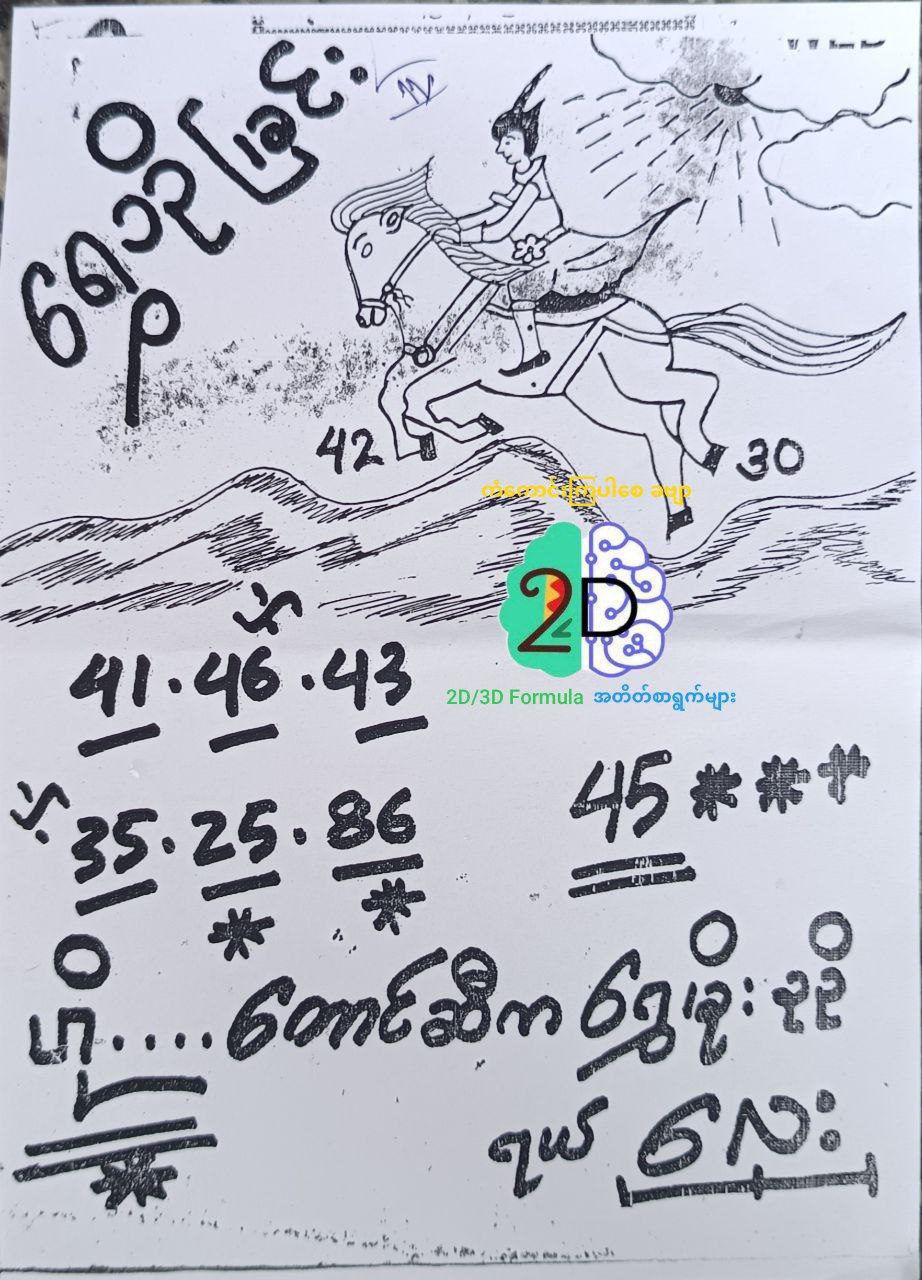 ရှေ့သို့ခြင်း
42
30
ကံကောင်းကြပါစေ ခဗျာ
2D
2D/3D Formula အတိတ်စာရွက်များ
41 . 46 . 43
35 . 25 . 86
45 ***
* *
ဟို .... တောင်ဆီက ရွှေခိုး ညိုညို
ရယ် လေး
*